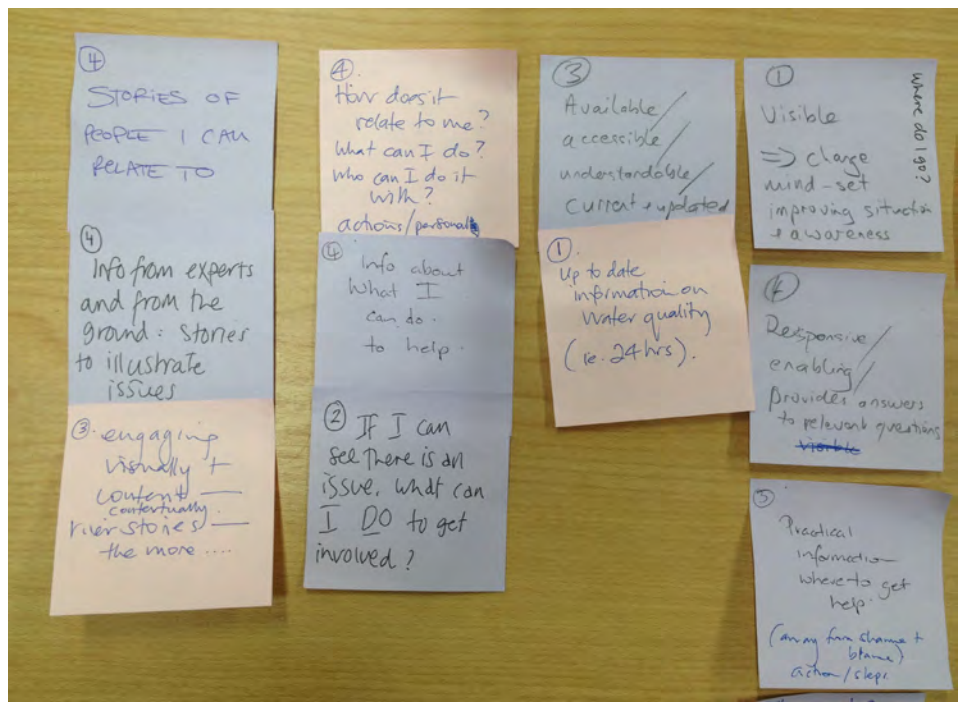 ④
STORIES OF
PEOPLE I CAN
RELATE TO
④
Info from experts
and from the
ground: stories
to illustrate
issues
③. engaging
visually +
content —
contextually.
river stories —
the more ....
④.
How does it
relate to me?
What can I do?
Who can I do it
with?
actions/personal
④ Info about
What I
can do.
to help.
② If I can
see there is an
issue, what can
I DO to get
involved?
③
Available /
accessible /
understandable /
Current + updated
①.
Up to date
information on
Water quality
(ie. 24 hrs).
①
Visible
⇒ change
mind-set
improving situation
+ awareness
Where do I go?
④
Responsive /
enabling /
Provides answers
to relevant questions
visible
⑤
Practical
information
where to get
help.
(away from shame +
blame)
action/steps